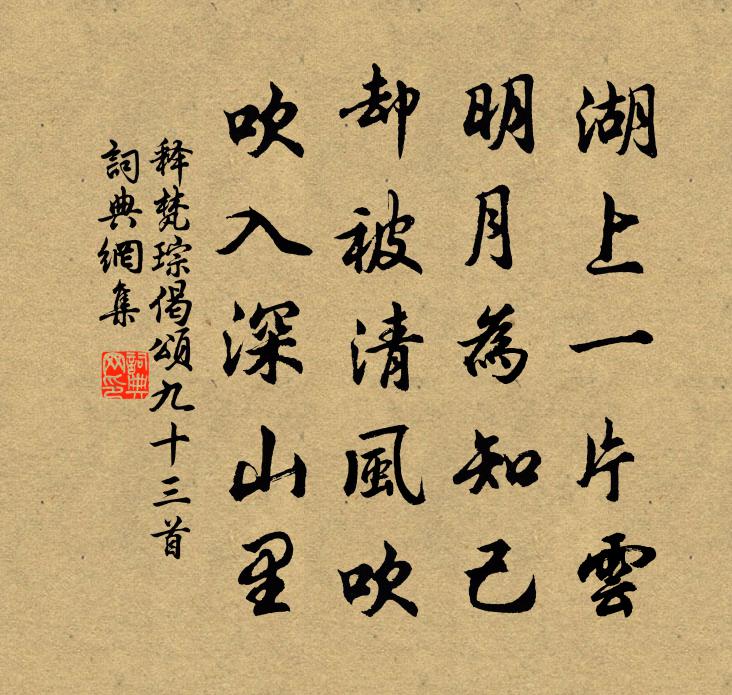 湖上一片雲
明月為知己
却被清風吹
吹入深山里
释梵琮偈頌九十三首
詞典網集
詞典网印